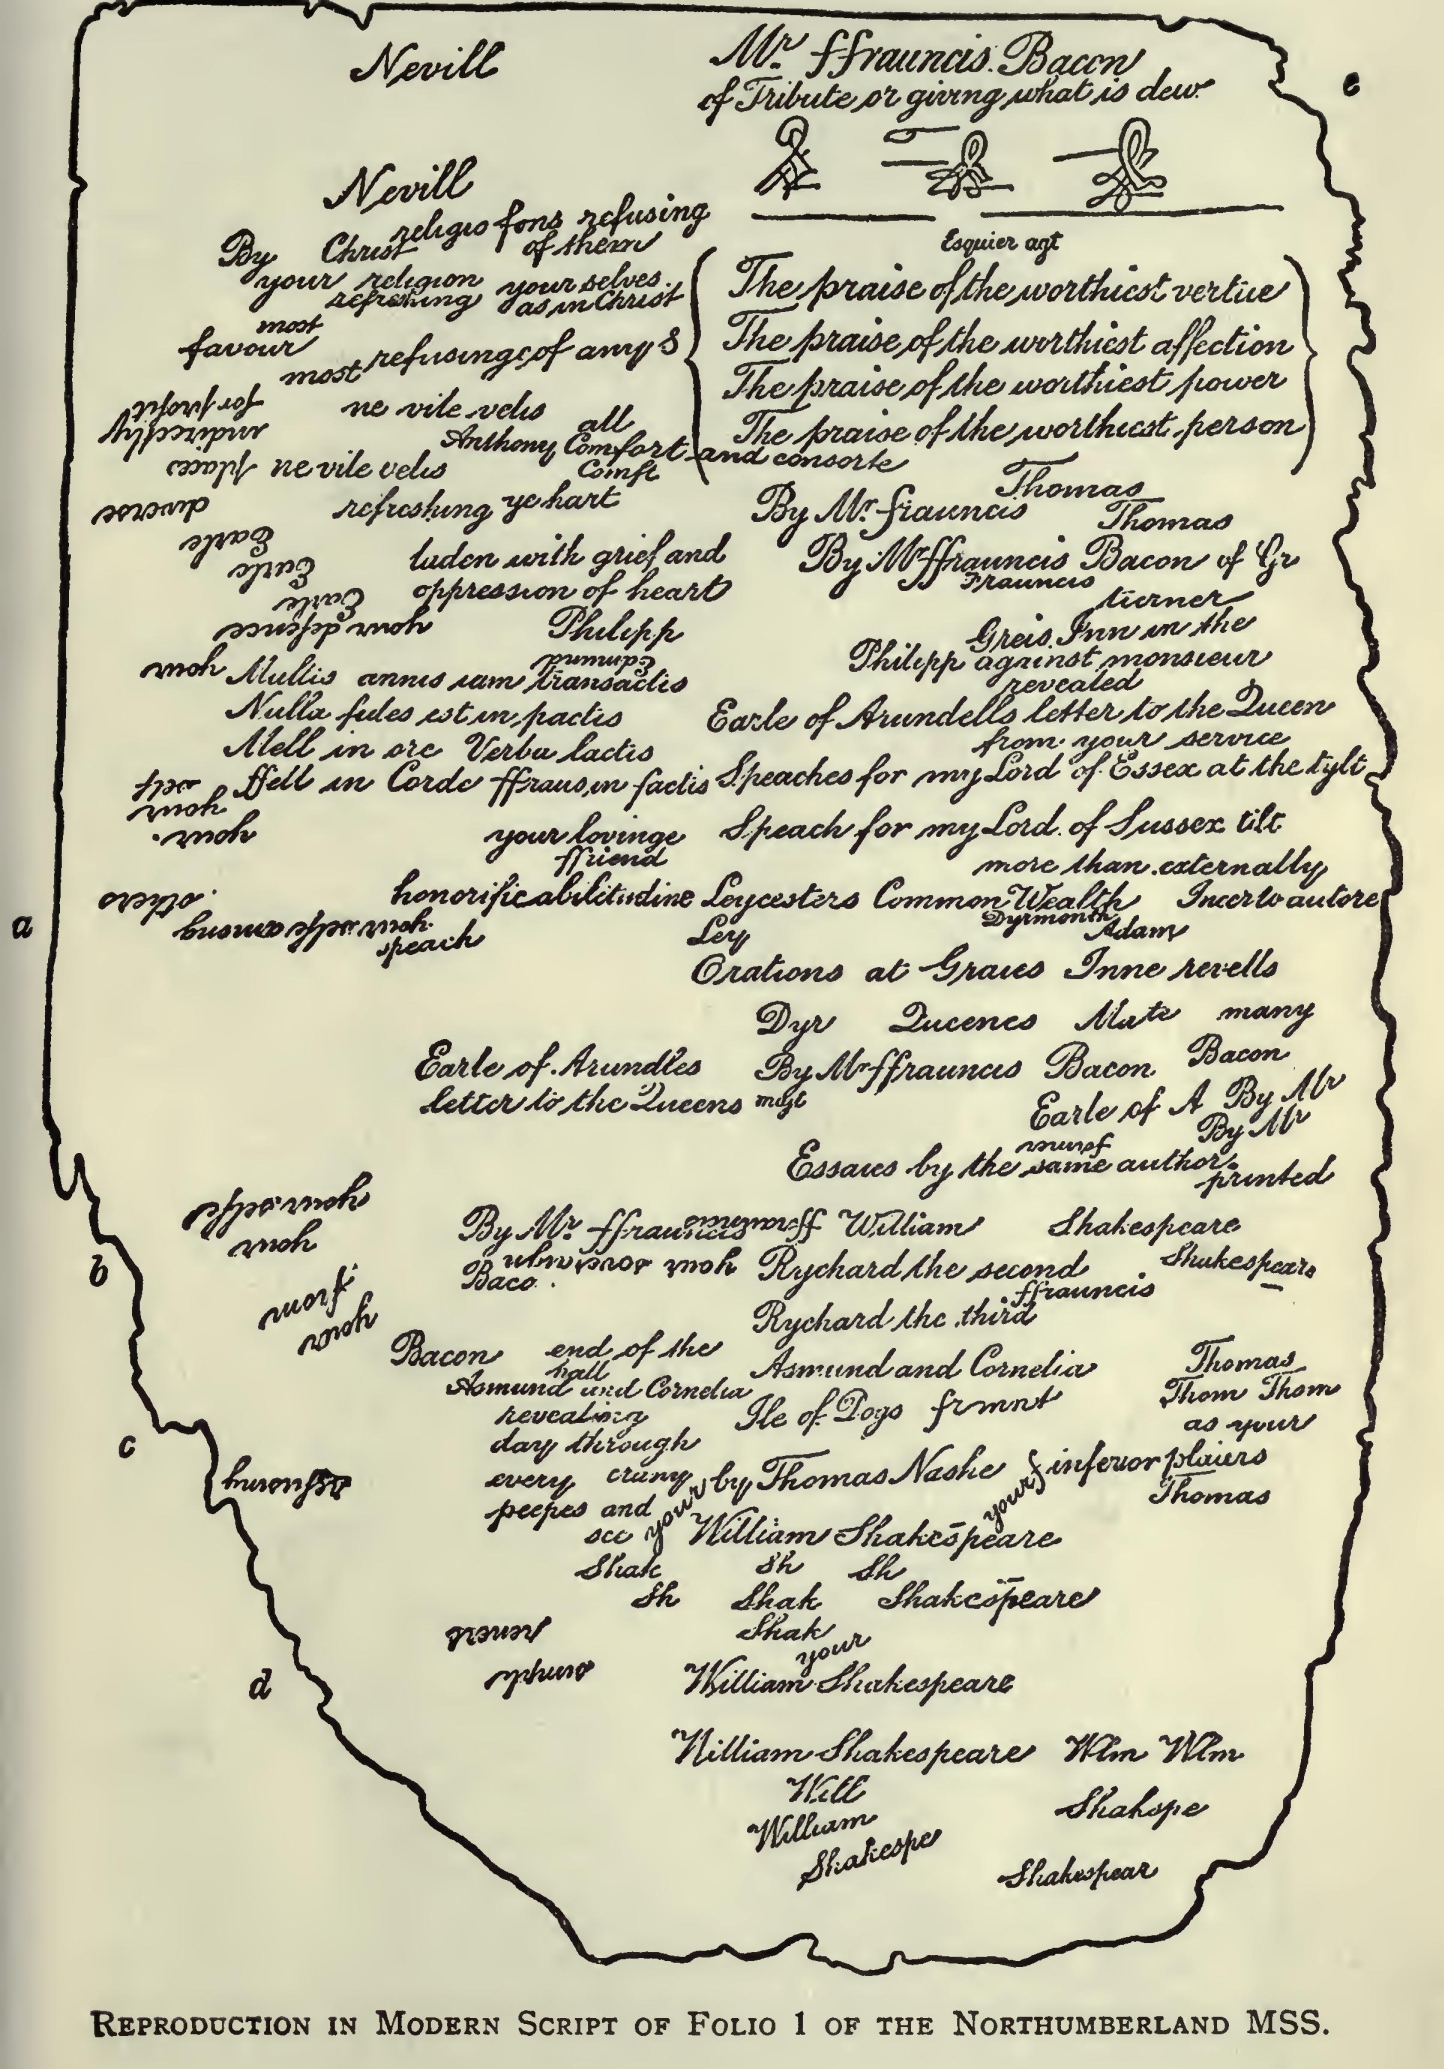 Nevill
Mr. ffrauncis. Bacon
of Tribute or giving what is dew
Nevill
religio fons refusing
By Christ of them
your religion your selves.
refreshing as in Christ
Esquier agt
The praise of the worthiest vertue
most
favour
The praise of the worthiest affection
most refusinge of any
The praise of the worthiest power
for profit
ne vile velis
all
The praise of the worthiest person
indirectly
Anthony Comfort and consorte
places ne vile velis Comft
Thomas
diverse
refreshing ye hart
By Mr. ffrauncis Thomas
Earle
Earle
laden with grief and
By Mr ffrauncis Bacon of Gr
Frauncis
Earle
oppression of heart
turner
your defence
Philipp
Greis Inn in the
Edmund
Philipp against monsieur
your Multis annis iam transactis
revealed
Nulla fides est in pactis
Earle of Arundells letter to the Queen
Mell in ore Verba lactis
from your service
ffell in Corde ffraus in factis
Speaches for my Lord of Essex at the tylt
your
your.
your lovinge
Speach for my Lord of Sussex tilt
ffriend
more than externally
others
honorificabilitudine
Leycesters Common Wealth Incerto autore
your selfe among
Dyrmonth
Adam
speach
Ley
Orations at Graies Inne revells
Dyr Queenes Mate many
Earle of Arundles
By Mr ffrauncis Bacon Bacon
letter to the Queens
Earle of A By Mr
By Mr
Essaies by the same author.
printed
your selfe
By Mr. ffrauncis ffrauncis William Shakespeare
your
your soveraign
Rychard the second Shakespeare
Baco.
ffrauncis
from
Rychard the third
your
Bacon end of the
hall
Asmund and Cornelia
Thomas
Asmund and Cornelia
Thom Thom
revealing
Ile of Dogs frmnt
as your
day through
every crany
by Thomas Nashe inferior plaiers
peepes and
your
your
Thomas
see
William Shakespeare
Shak Sh Sh
Sh Shak Shakespeare
Shak
your
William Shakespeare
William Shakespeare Wlm Wlm
Will
Shakspe
William
Shakespe
Shakespear
a
b
c
d
e
REPRODUCTION IN MODERN SCRIPT OF FOLIO 1 OF THE NORTHUMBERLAND MSS.